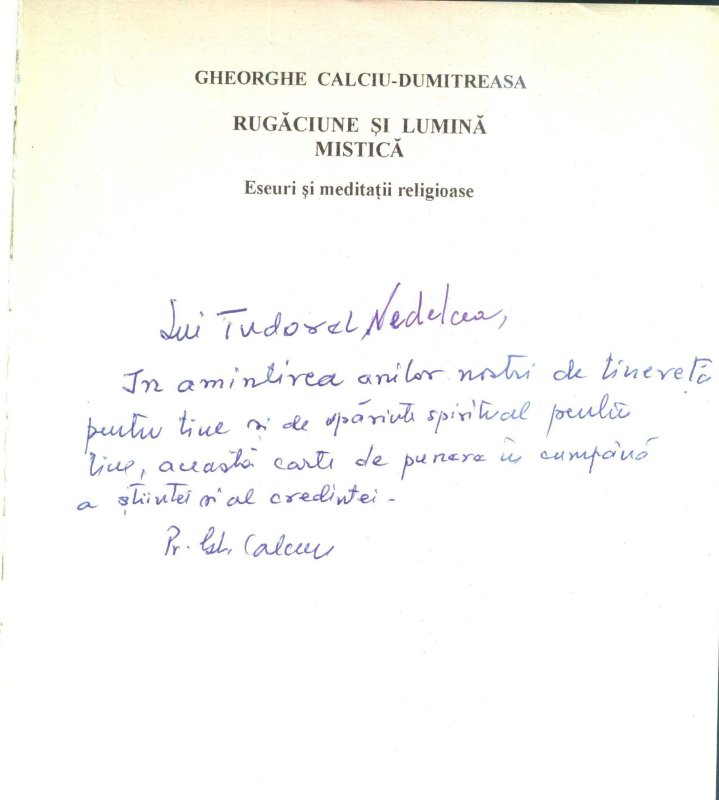 GHEORGHE CALCIU-DUMITREASA
RUGĂCIUNE ȘI LUMINĂ
MISTICĂ
Eseuri și meditații religioase
Lui Tudorel Nedelcea,
In amintirea anilor nostri de tinereță
pentru tine și de părinte spiritual pentru
tine, această carte de punere în cumpănă
a științei și al credintei -
Pr. Gh. Calciu